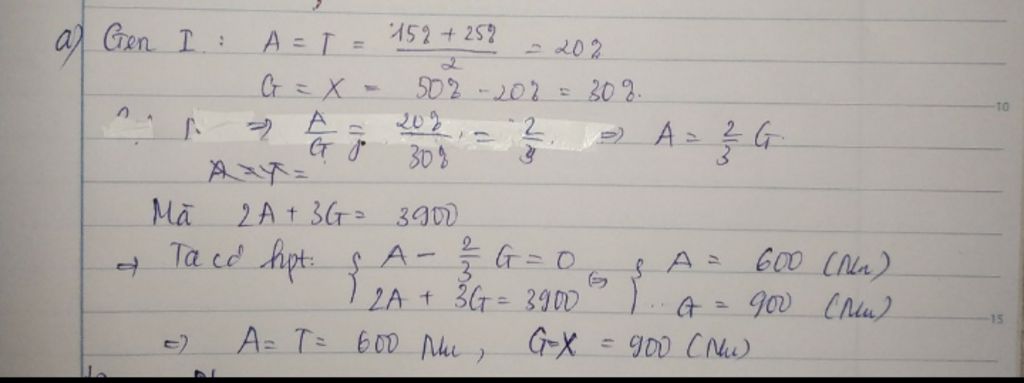 a) Gen I : A = T = (15% + 25%)/2 = 20%
G = X = 50% - 20% = 30%.
⇒ A/G = 20%/30% = 2/3 ⇒ A = 2/3 G
A = T =
Mà 2A + 3G = 3900
⇒ Ta có hpt: { A - 2/3 G = 0 ⇔ { A = 600 (Nu)
2A + 3G = 3900 G = 900 (Nu)
⇒ A = T = 600 Nu, G=X = 900 (Nu)
10
15